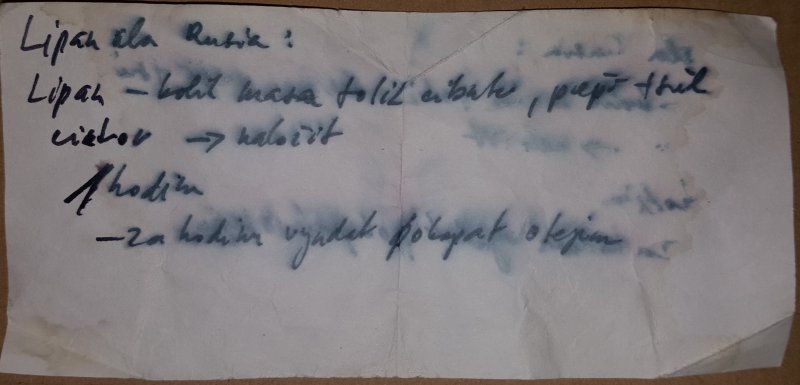 Lipan ala Rusia:
Lipan - kolik masa tolik cibule, pepř + sůl
citron → naložit
1 hodin
- za hodin vyndat pokapat olejem